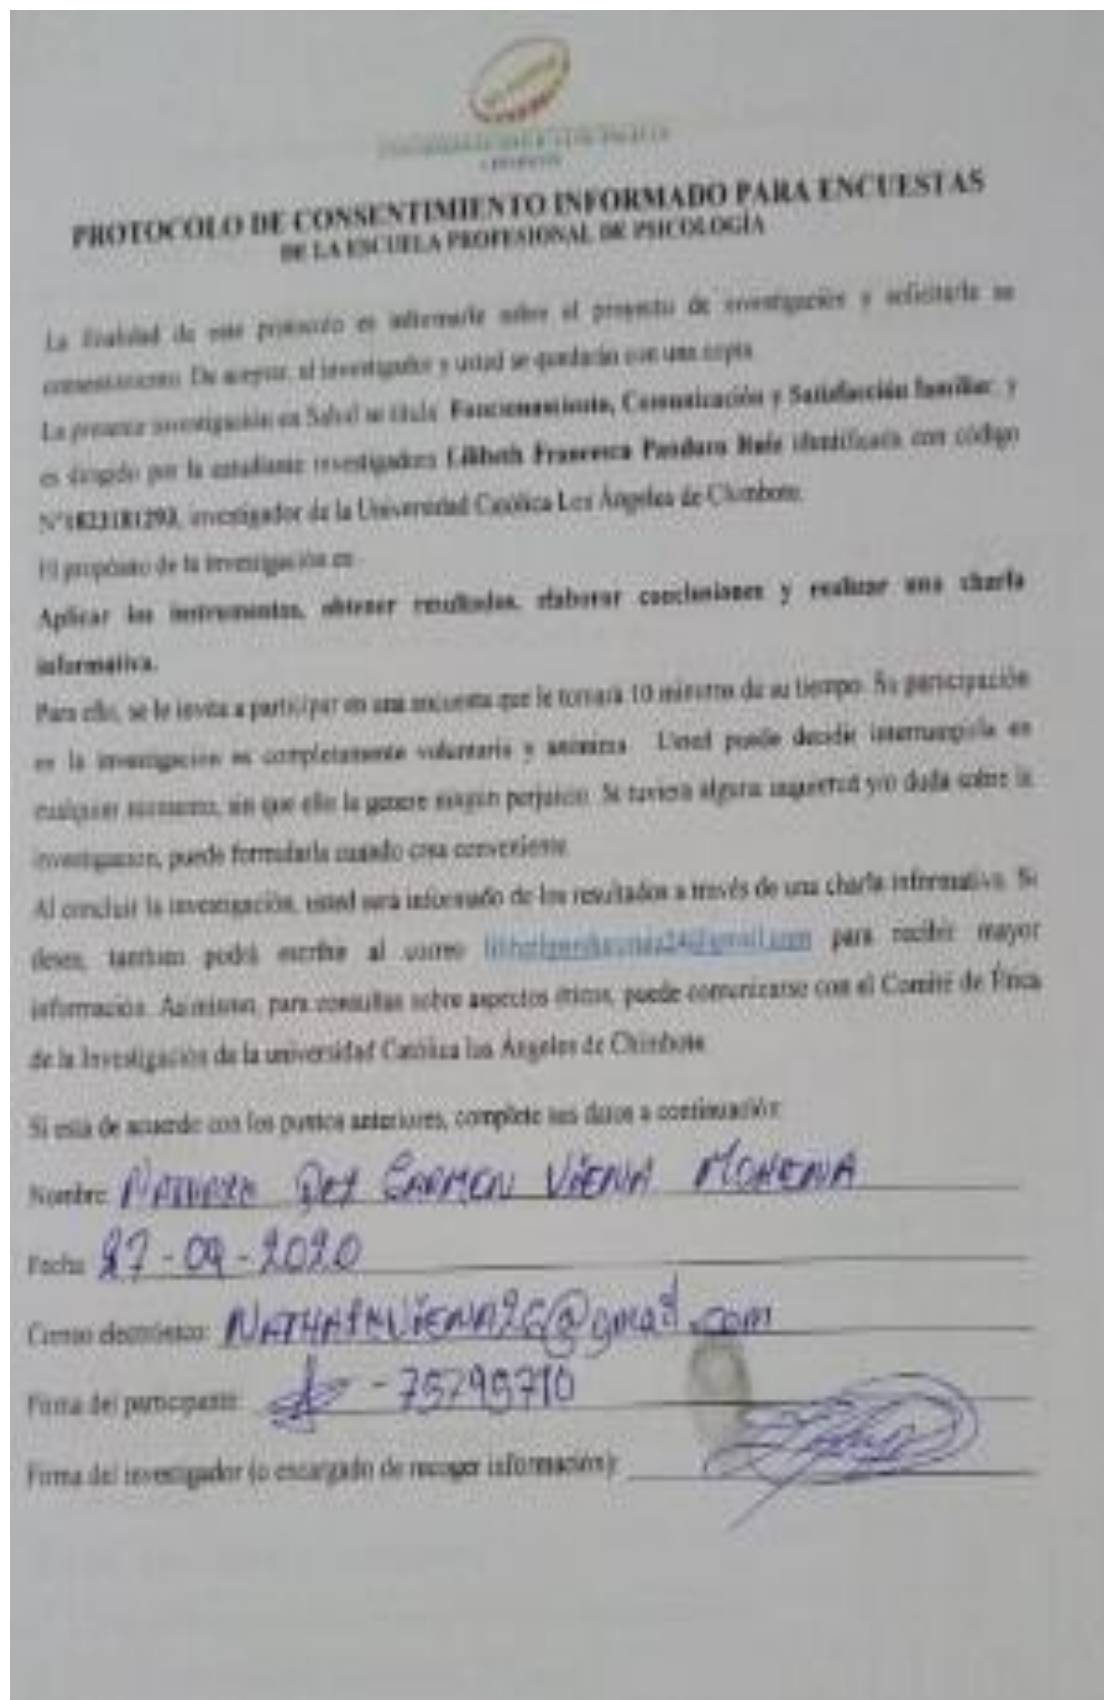 PROTOCOLO DE CONSENTIMIENTO INFORMADO PARA ENCUESTAS
DE LA ESCUELA PROFESIONAL DE PSICOLOGÍA
La finalidad de este protocolo es informarle sobre el proyecto de investigación y solicitarle su
consentimiento. De aceptar, el investigador y usted se quedarán con una copia.
La presente investigación en Salud se titula: Funcionamiento, Comunicación y Satisfacción familiar, y
es dirigido por la estudiante investigadora Lilibeth Francesca Panduro Ruiz identificada con código
N°1823181293, investigador de la Universidad Católica Los Ángeles de Chimbote.
El propósito de la investigación es:
Aplicar los instrumentos, obtener resultados, elaborar conclusiones y realizar una charla
informativa.
Para ello, se le invita a participar en una encuesta que le tomará 10 minutos de su tiempo. Su participación
en la investigación es completamente voluntaria y anónima. Usted puede decidir interrumpirla en
cualquier momento, sin que ello le genere ningún perjuicio. Si tuviera alguna inquietud y/o duda sobre la
investigación, puede formularla cuando crea conveniente.
Al concluir la investigación, usted será informado de los resultados a través de una charla informativa. Si
desea, también podrá escribir al correo para recibir mayor
información. Asimismo, para consultas sobre aspectos éticos, puede comunicarse con el Comité de Ética
de la Investigación de la universidad Católica los Ángeles de Chimbote.
Si está de acuerdo con los puntos anteriores, complete sus datos a continuación:
Nombre: Del Carmen Viena
Fecha: 27-09-2020
Correo electrónico: @gmail.com
Firma del participante: - 75795710
Firma del investigador (o encargado de recoger información):